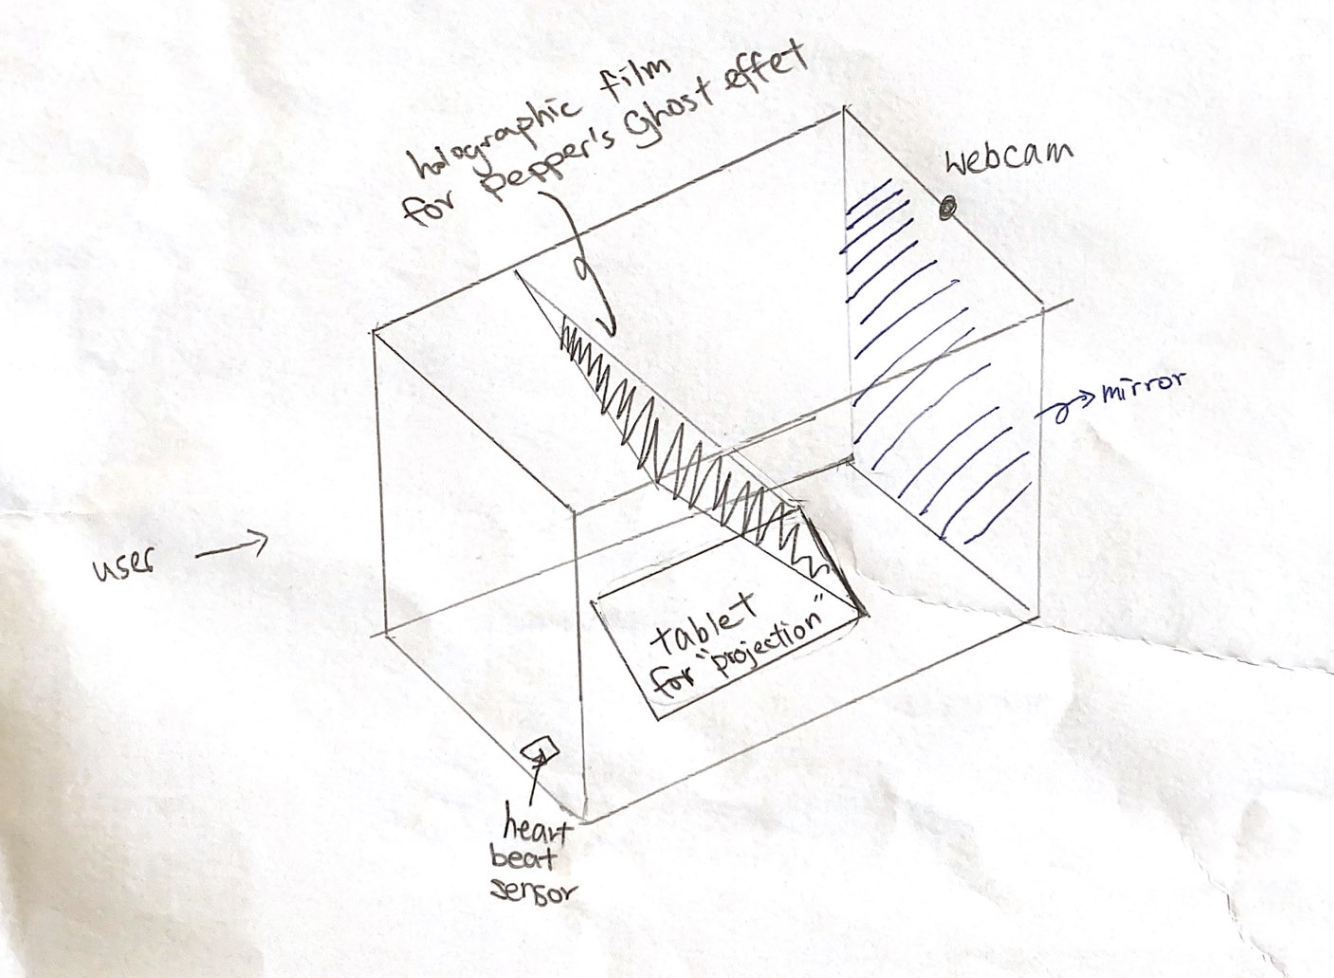 holographic film
for pepper's Ghost effet
webcam
mirror
user
tablet
for "projection"
heart
beat
sensor